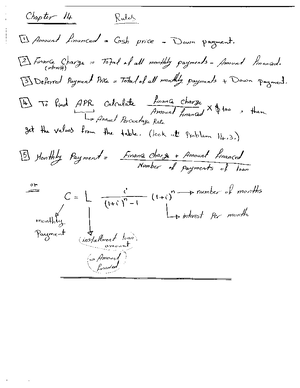 Chapter 14 Rules
1 Amount financed = Cash price - Down payment.
2 Finance Charge = Total of all monthly payments - Amount financed.
(interest)
3 Deferred Payment Price = Total of all monthly payments + Down payment.
4 To find APR calculate Finance charge / Amount financed × $100, then
Annual Percentage Rate
get the values from the table. (look at Problem 14.3.)
5 Monthly Payment = Finance charge + Amount financed / Number of payments of loan
or
C = L i / (1+i)^n - 1 (1+i)^n → number of months
interest per months
monthly
Payment
installment loan
amount
Amount
financed